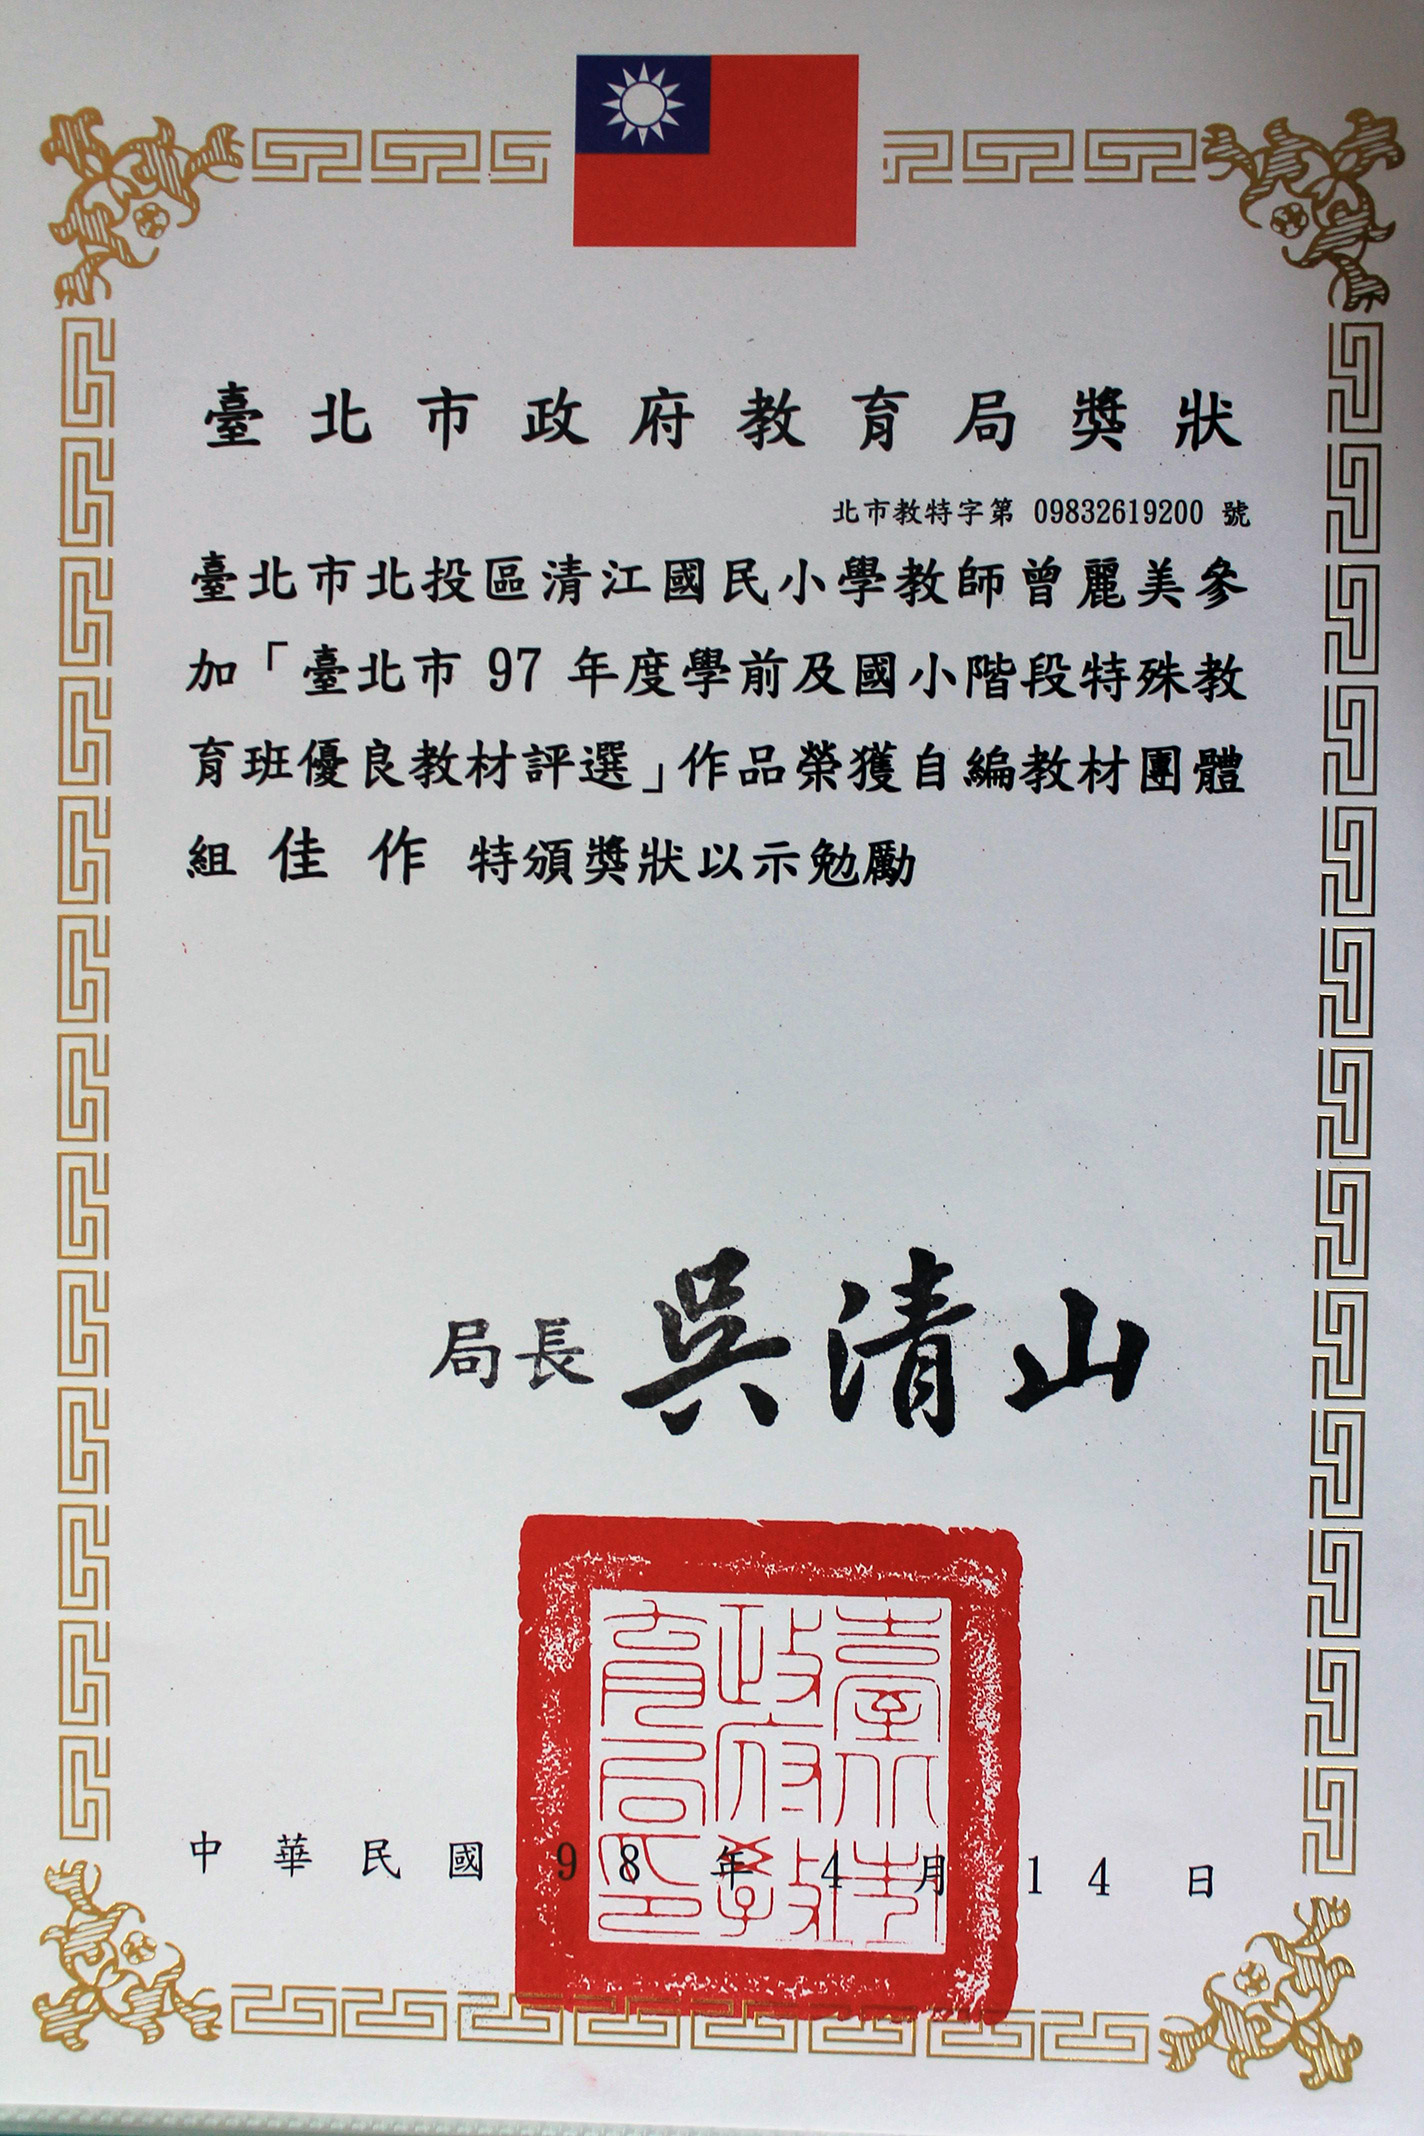 臺北市政府教育局獎狀
北市教特字第 09832619200 號
臺北市北投區清江國民小學教師曾麗美參
加「臺北市 97 年度學前及國小階段特殊教
育班優良教材評選」作品榮獲自編教材團體
組 佳 作 特頒獎狀以示勉勵
局長 吳清山
臺北市政府教育局印
中華民國 98 年 4 月 14 日